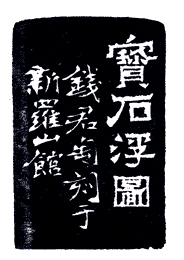 寶石浮圖
錢君匋刻于
新羅山館